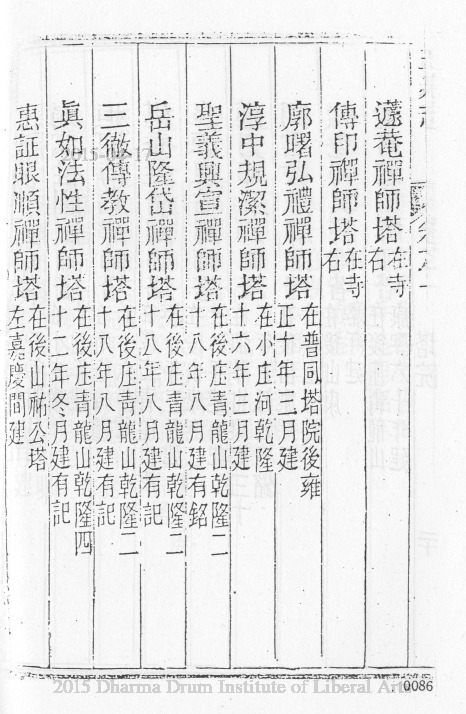 蘧菴禪師塔在寺右
傳印禪師塔在寺右
廓曙弘禮禪師塔在普同塔院後雍正十年三月建
淳中規潔禪師塔在小庄河乾隆十六年三月建
聖義興宣禪師塔在後庄青龍山乾隆二十八年八月建有銘
岳山隆岱禪師塔在後庄青龍山乾隆二十八年八月建有記
三徹傳教禪師塔在後庄靑龍山乾隆二十八年八月建有記
眞如法性禪師塔在後庄青龍山乾隆四十二年冬月建有記
惠証眼順禪師塔在後山祐公塔左嘉慶間建
2015 Dharma Drum Institute of Liberal Arts
0086